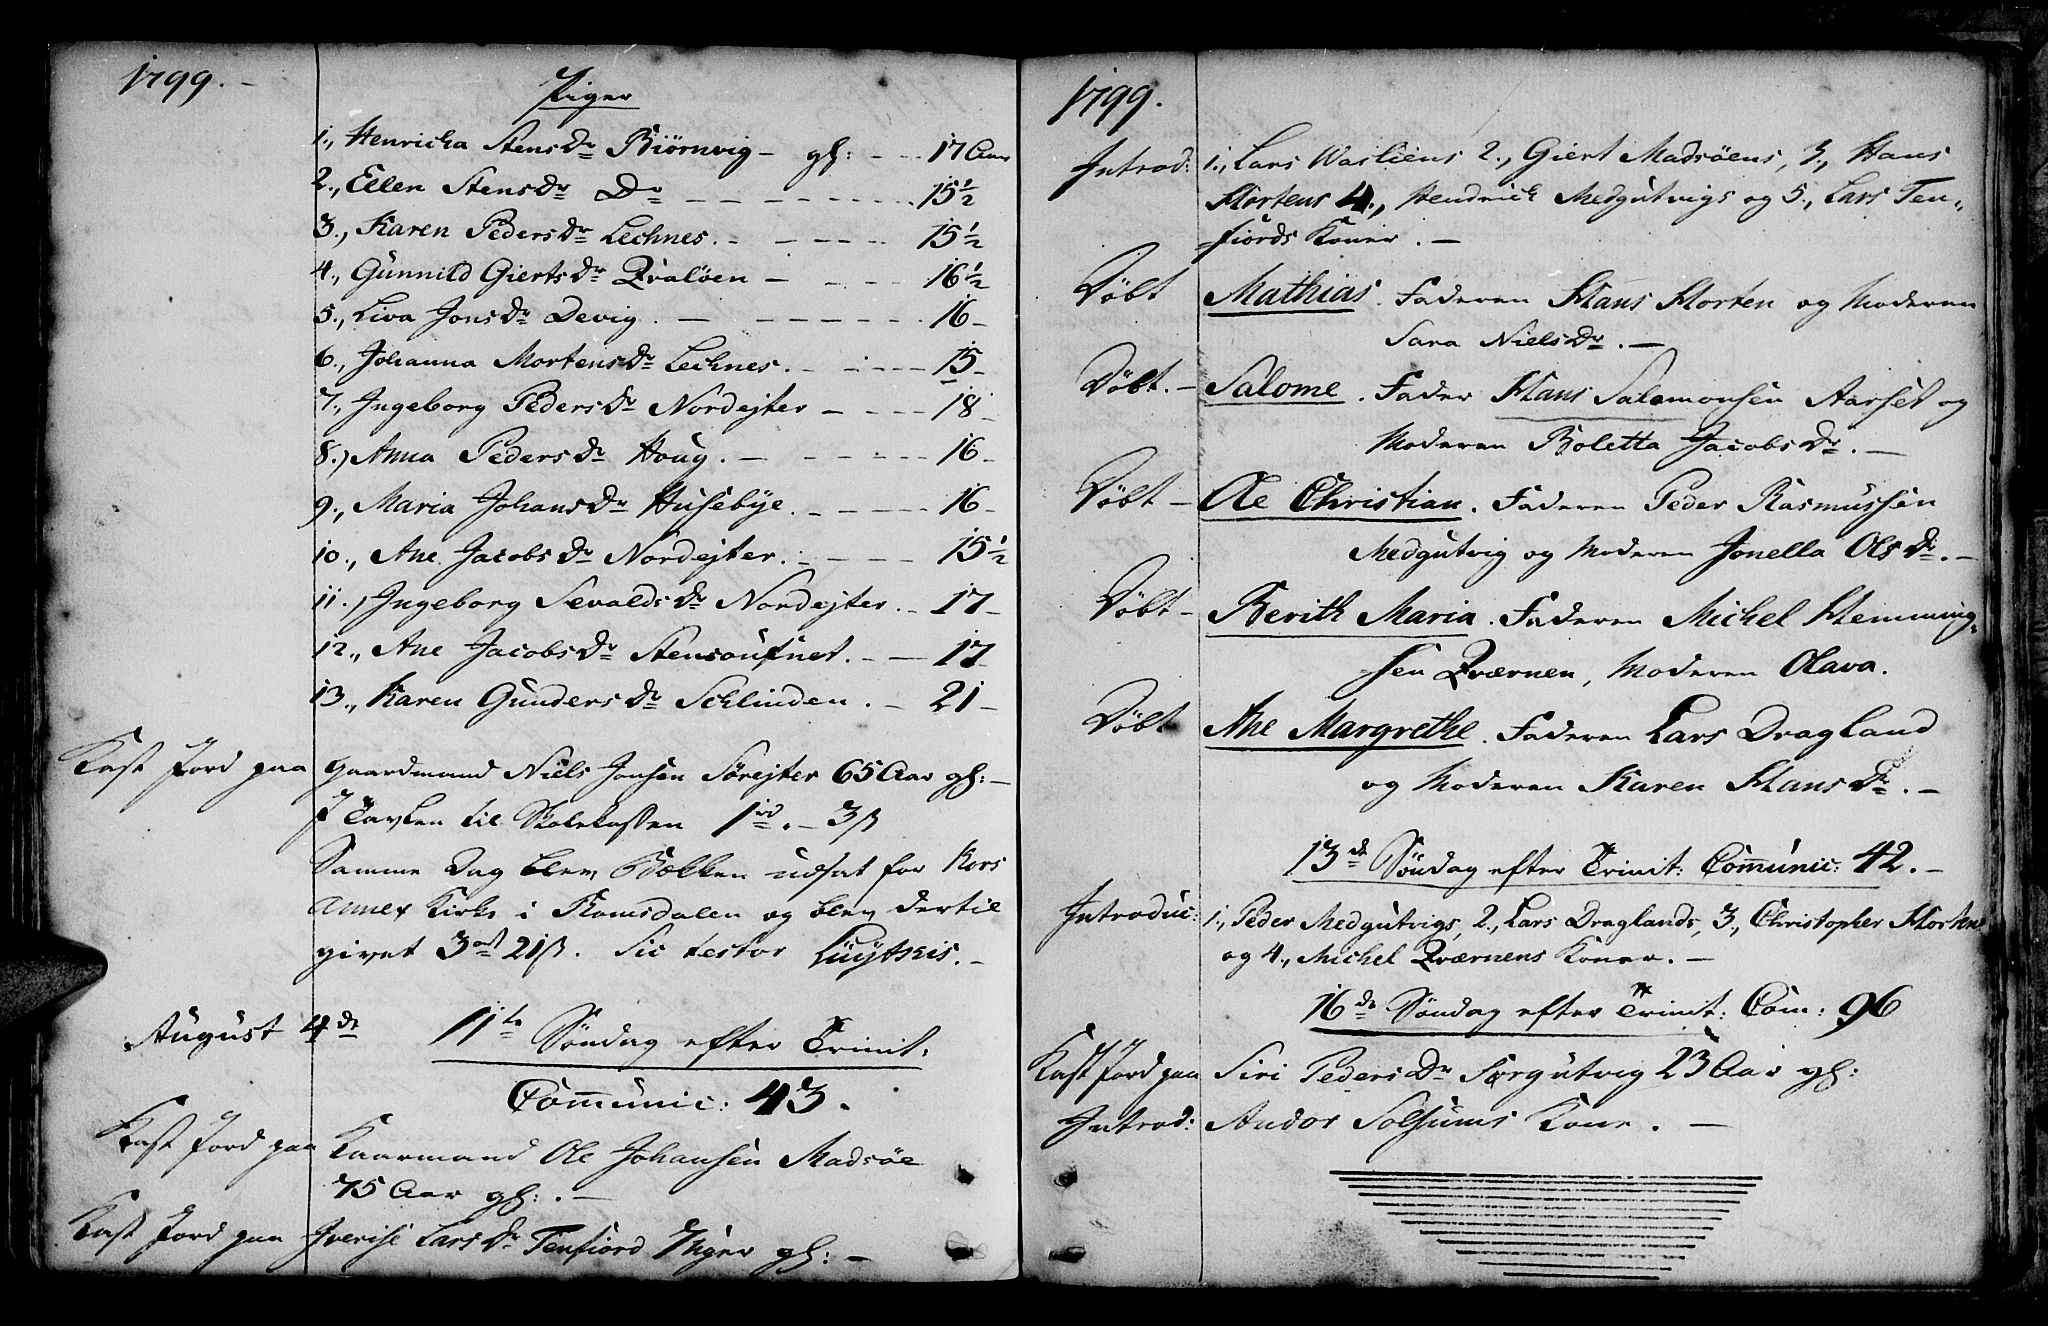 1799.-
Piger
1., Henricha Stens Dr Biörnvig - gl: - - - 17 Aar
2., Ellen Stens Dr Do - - - - - 15 1/2
3., Karen Peders Dr Lechnes. - - - - 15 1/2
4., Gunnild Gierts Dr Qvalöen - - - - 16 1/2
5., Liva Jons Dr Devig. - - - - - 16 -
6., Johanna Mortens Dr Lechnes. - - - - 15 -
7., Ingeborg Peders Dr Nordejter - - - - 18 -
8., Anna Peders Dr Houg. - - - - - 16 -
9., Maria Johans Dr Husebÿe. - - - - 16 -
10., Ane Jacobs Dr Nordejter. - - - - 15 1/2
11., Ingeborg Sevalds Dr Nordejter. - 17 -
12., Ane Jacobs Dr Stensousnet. - - 17
13., Karen Gunders Dr Schlinden. - 21 -
Kast Jord paa Gaardmand Niels Jonsen Sörejter 65 Aar gl: -
I Tavlen til Skolekassen 1 rd. - 3 ß
Samme Dag blev Bækken udsat for Kors
Annex Kirke i Romsdalen og blev dertil
givet 3 ort 21 ß. Sic testor
August 4de 11te Söndag efter Trinit:
Communic: 43.
Kast Jord paa Kaarmand Ole Johansen Madsöe
75 Aar gl: . -
Kast Jord paa Larsdr Tenfiord 7 Uger gl: -
1799.
Introd: 1., Lars Vasliens 2., Giert Madsöens, 3., Hans
Hortens 4., Hendrich Medgutvigs og 5., Lars Ten-
fiords Koner. -
Döbt Mathias. Faderen Hans Horten og Moderen
Sara Niels Dr. -
Döbt. - Salome. Fader Hans Salomonsen Aarset og
Moderen Boletta Jacobs Dr. -
Döbt - Ole Christian. Faderen Peder Rasmussen
Medgutvig og Moderen Jonella Ols Dr. -
Döbt - Berith Maria. Faderen Michel Hemming-
sen Qværnen, Moderen Olava.
Döbt Ane Margrethe. Faderen Lars Dragland
og Moderen Karen Hans Dr. -
13de Söndag efter Trinit: Communic: 42. -
Introduc: 1., Peder Medgutvigs, 2., Lars Draglands, 3., Christopher Hortens
og 4., Michel Qværnens Koner. -
16de Söndag efter Trinit: Com: 96
Kast Jord paa Siri Peders Dr Sörgutvig 23 Aar gl:
Introd: Andor Solsums Kone. -